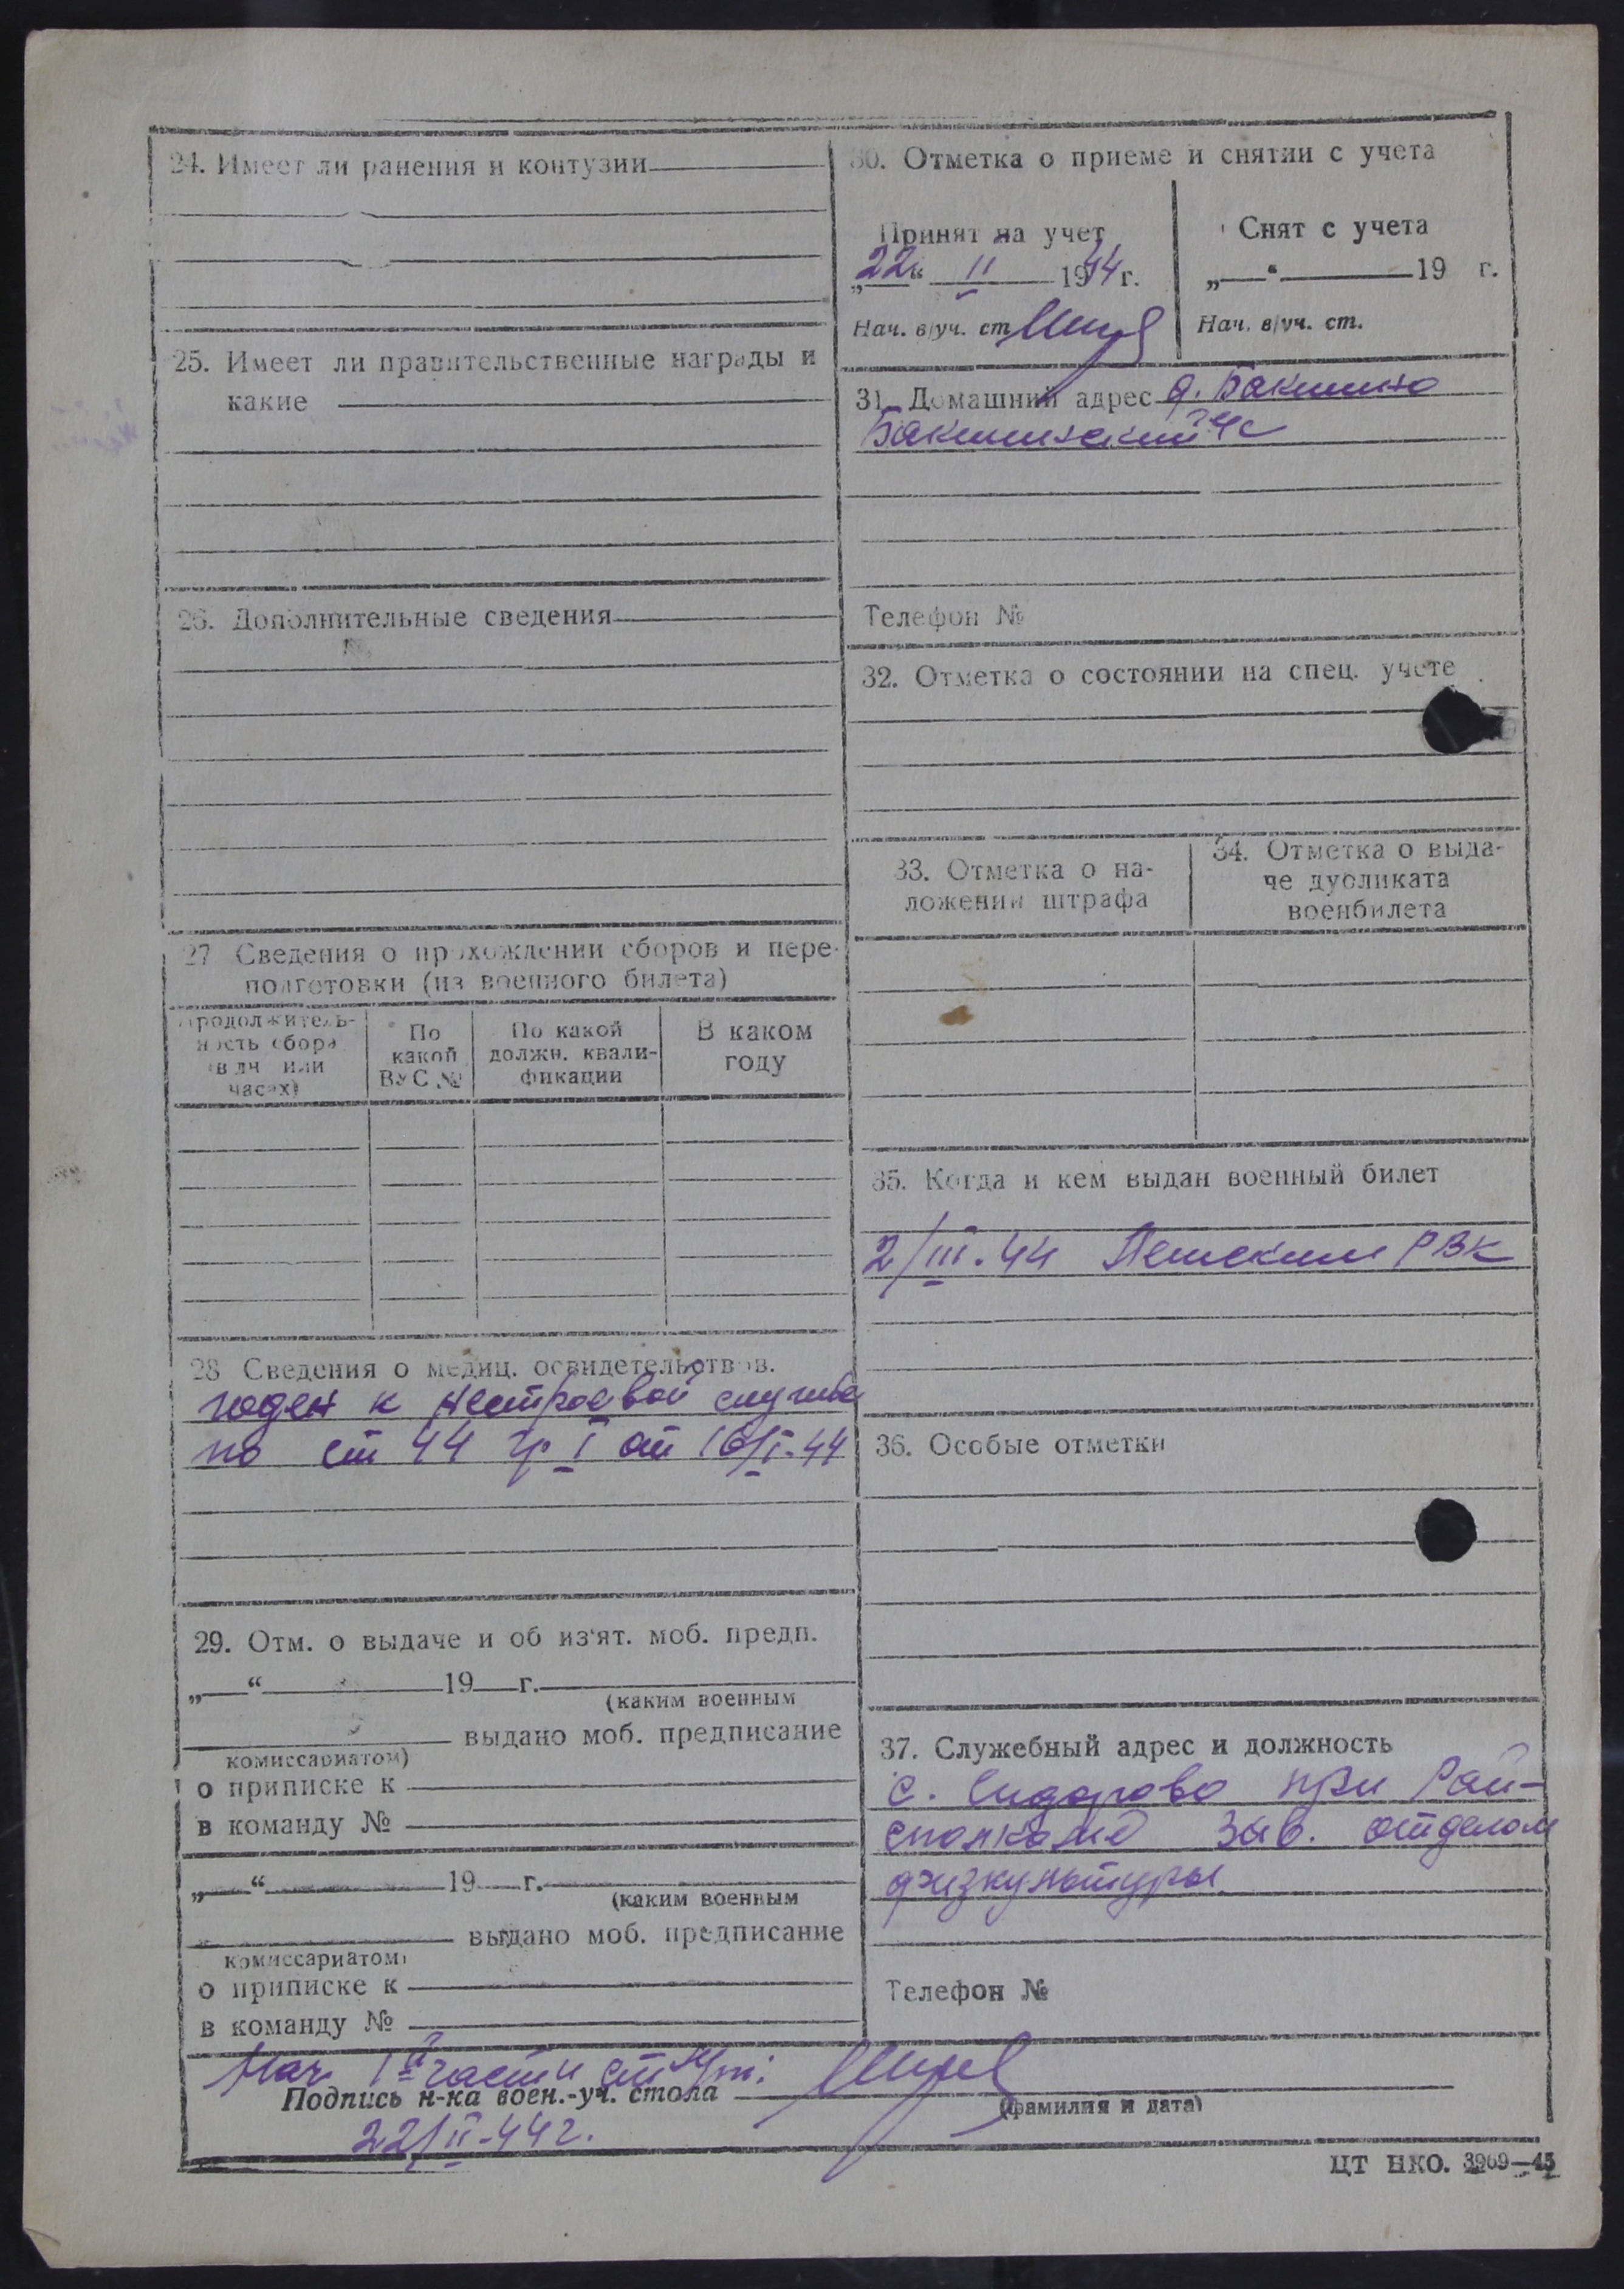 24. Имеет ли ранения и контузии
25. Имеет ли правительственные награды и
какие
26. Дополнительные сведения
27 Сведения о прохождении сборов и пере-
подготовки (из военного билета)
Продолжитель-
ность сбора
в дн. или
часах)
По
какой
ВУС №
По какой
должн. квали-
фикации
В каком
году
28 Сведения о медиц. освидетельствов.
годен к нестроевой службе
по ст 44 гр I от 16/I-44
29. Отм. о выдаче и об из'ят. моб. предп.
„ “ 19 г.
(каким военным
выдано моб. предписание
комиссариатом)
о приписке к
в команду №
„ “ 19 г.
(каким военным
выдано моб. предписание
комиссариатом)
о приписке к
в команду №
30. Отметка о приеме и снятии с учета
Принят на учет
„22“ II 1944 г.
Нач. в/уч. ст
Снят с учета
„ “ 19 г.
Нач. в/уч. ст.
31. Домашний адрес д. Бакшино
Бакшинский с/с
Телефон №
32. Отметка о состоянии на спец. учете
33. Отметка о на-
ложении штрафа
34. Отметка о выда-
че дубликата
военбилета
35. Когда и кем выдан военный билет
2/III.44 РВК
36. Особые отметки
37. Служебный адрес и должность
с. Сидорово при Рай-
зав. отделом
физкультуры
Телефон №
Нач 1й части
Подпись н-ка воен.-уч. стола
(фамилия и дата)
22/II-44 г.
ЦТ НКО. 3969—43